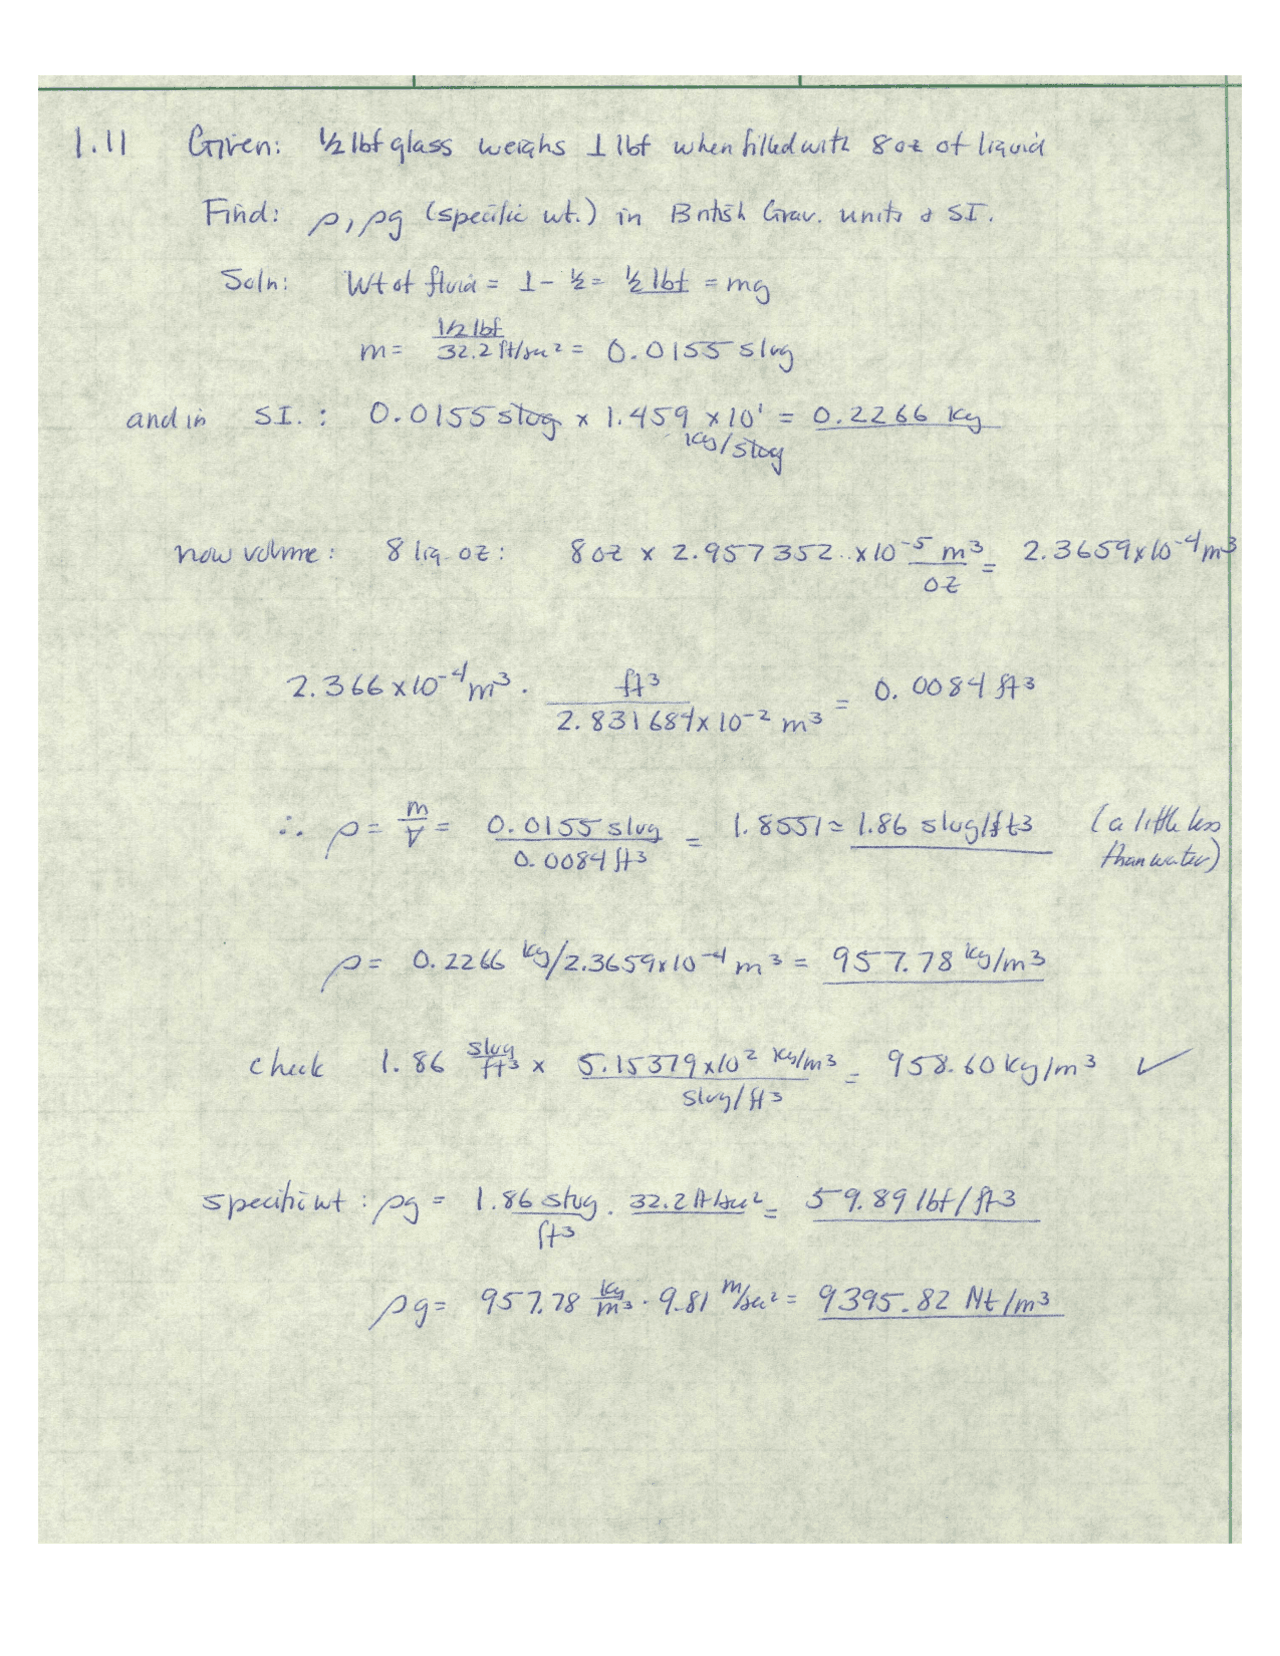 1.11 Given: 1/2 lbf glass weighs 1 lbf when filled with 8 oz of liquid
Find: ρ, ρg (specific wt.) in British Grav. units & SI.
Soln: Wt of fluid = 1 - 1/2 = 1/2 lbf = mg
m = 1/2 lbf / 32.2 ft/sec² = 0.0155 slug
and in SI. : 0.0155 slug x 1.459 x 10¹ kg/slug = 0.2266 kg
now volume: 8 liq. oz: 8 oz x 2.957352.. x 10⁻⁵ m³/oz = 2.3659x10⁻⁴ m³
2.366 x 10⁻⁴ m³ · ft³ / 2.831684 x 10⁻² m³ = 0.0084 ft³
∴ ρ = m/V = 0.0155 slug / 0.0084 ft³ = 1.8551 ≈ 1.86 slug/ft³ (a little less than water)
ρ = 0.2266 kg/2.3659x10⁻⁴ m³ = 957.78 kg/m³
check 1.86 slug/ft³ x 5.15379 x10² kg/m³ / slug/ft³ = 958.60 kg/m³ ✓
specific wt : ρg = 1.86 slug/ft³ · 32.2 ft/sec² = 59.89 lbf/ft3
ρg = 957.78 kg/m³ · 9.81 m/sec² = 9395.82 Nt/m³